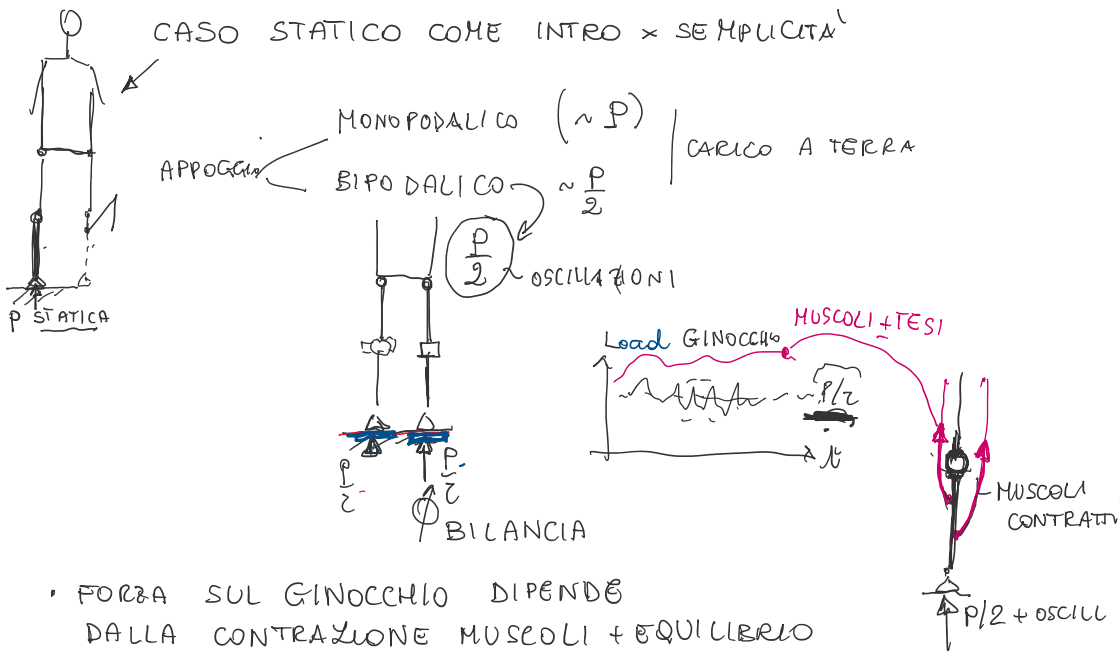 CASO STATICO COME INTRO x SEMPLICITA'
APPOGGIO
MONOPODALICO (~ P)
BIPODALICO ~ P/2
CARICO A TERRA
P/2 ~ OSCILLAZIONI
P STATICA
P/2
P/2
BILANCIA
Load GINOCCHIO
MUSCOLI + TESI
~ P/2
t
MUSCOLI
CONTRATTI
P/2 + OSCILL
• FORZA SUL GINOCCHIO DIPENDE
DALLA CONTRAZIONE MUSCOLI + EQUILIBRIO